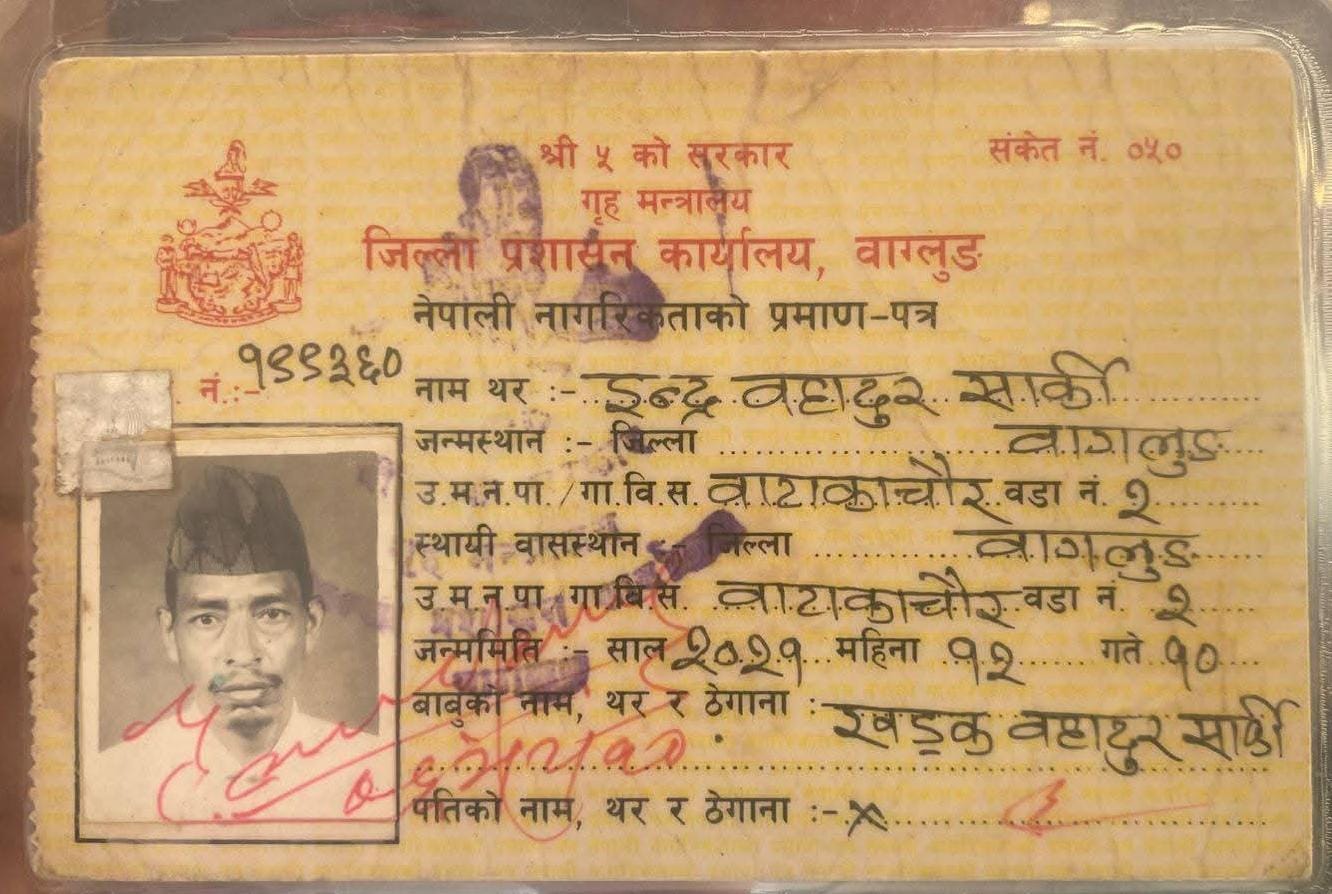 श्री ५ को सरकार
संकेत नं. ०५०
गृह मन्त्रालय
जिल्ला प्रशासन कार्यालय, वाग्लुङ
नेपाली नागरिकताको प्रमाण-पत्र
नं.:- १९९३६०
नाम थर :- इन्द्र वहादुर सार्की
जन्मस्थान :- जिल्ला वागलुङ
उ.म.न.पा./गा.वि.स. वाटाकाचौर वडा नं. २
स्थायी वासस्थान :- जिल्ला वागलुङ
उ.म.न.पा. गा.वि.स. वाटाकाचौर वडा नं. २
जन्ममिति :- साल २०२१ महिना १२ गते १०
बाबुको नाम, थर र ठेगाना : खड्क वहादुर सार्की
पतिको नाम, थर र ठेगाना :- x